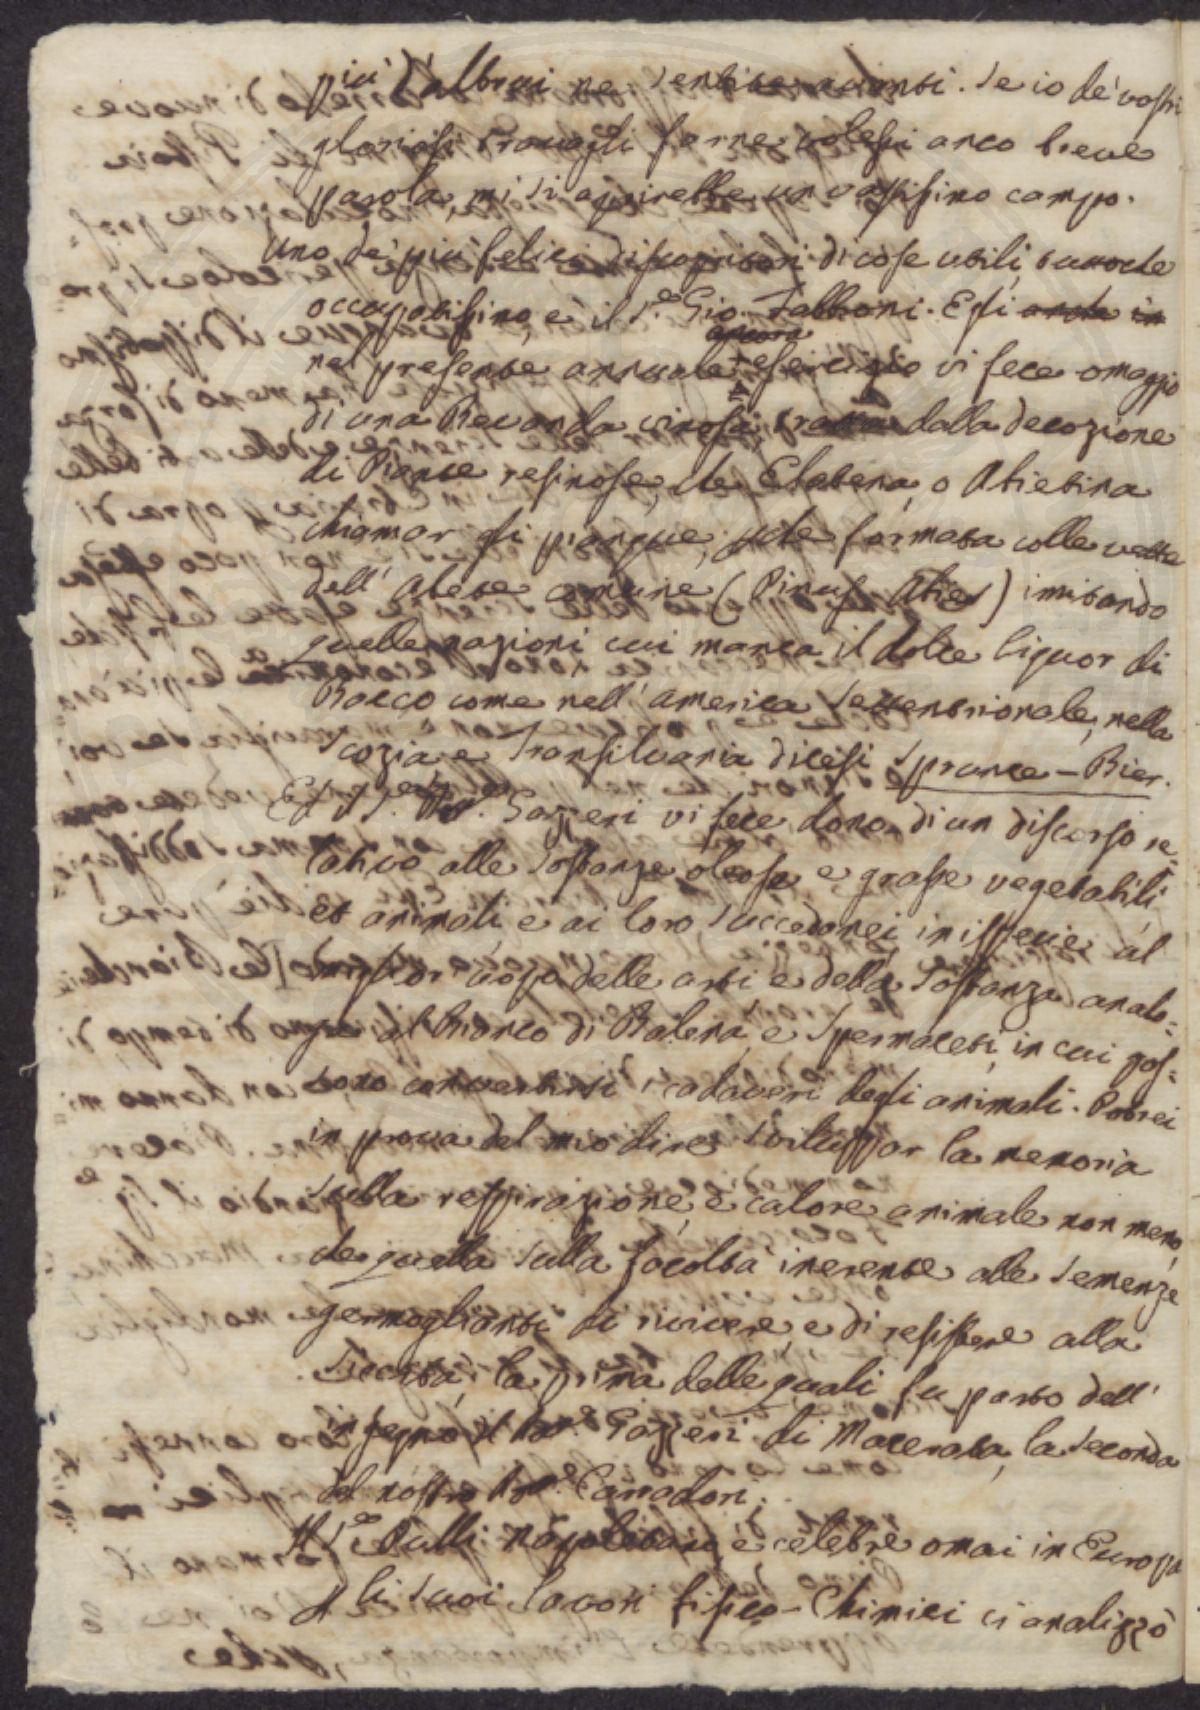 più d'altrui ne sentite avanti. Se io de' vostri
gloriosi travagli farne volessi anco breve
parola, mi si aprirebbe un vastissimo campo.
Uno de' più felici discopritori di cose utili,
occupatissimo, è il S.e Gio. Fabbroni. Egli anche in
ancora
nel presente annuale esercizio vi fece omaggio
di una Bevanda vinosa, tratta dalla decozione
di Piante resinose, che Elatena, o Abietina
chiamar gli piacque, pche formata colle vette
dell' Abete comune (Pinus Abies) imitando
quelle nazioni cui manca il dolce liquor di
Bacco come nell' America Settentrionale, nella
Scozia e Transilvania dicesi Sprunce-Bier.
Gazzeri vi fece dono di un discorso re-
lativo alle sostanze oleose e grasse vegetabili
et animali e ai loro succedanei, in ispecie al
miglior uopo delle arti e della sostanza analo-
ga al Bianco di Balena, e Spermaceti, in cui pos-
sono convertirsi i cadaveri degli animali. Potrei
in prova del mio dire sviluppar la memoria
sulla respirazione, e calore animale non meno
che quella sulla facoltà inerente alle semenze
germoglianti di vivere, e di resistere alla
siccità, la prima delle quali fu parto dell'
ingegno Gazzeri di Macerata, la seconda
del nostro Carradori.
Il S.e Pulli Napoletano, è celebre omai in Europa
p li suoi lavori Fisico-Chimici ci analizzò
pche